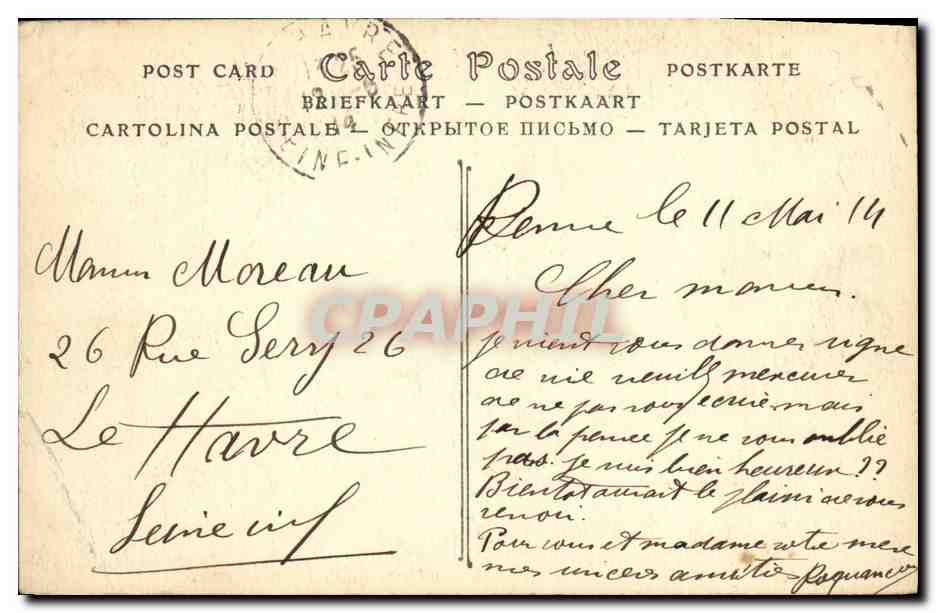 POST CARD Carte Postale POSTKARTE
BRIEFKAART — POSTKAART
CARTOLINA POSTALE — ОТКРЫТОЕ ПИСЬМО — TARJETA POSTAL
HAVRE
SEINE-INFRE
Moreau
26 Rue Sery 26
Le Havre
Seine inf
le 11 Mai 14
Cher
je vient vous donner signe
de vie
de ne pas vous ecrire mais
par la pence je ne vous oublie
pas. je suis bien heureux ??
Bientot aurait le plaisi de vous
revoir.
Pour vous et madame votre mere
mes sinceres amitiés
CPAPHIL